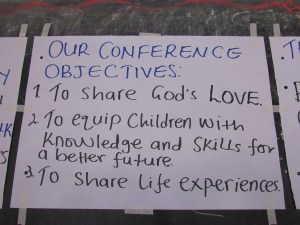 . OUR CONFERENCE
OBJECTIVES:
1. To share God's LOVE.
2. To equip Children with
Knowledge and skills for
a better future.
3. To share Life experiences.